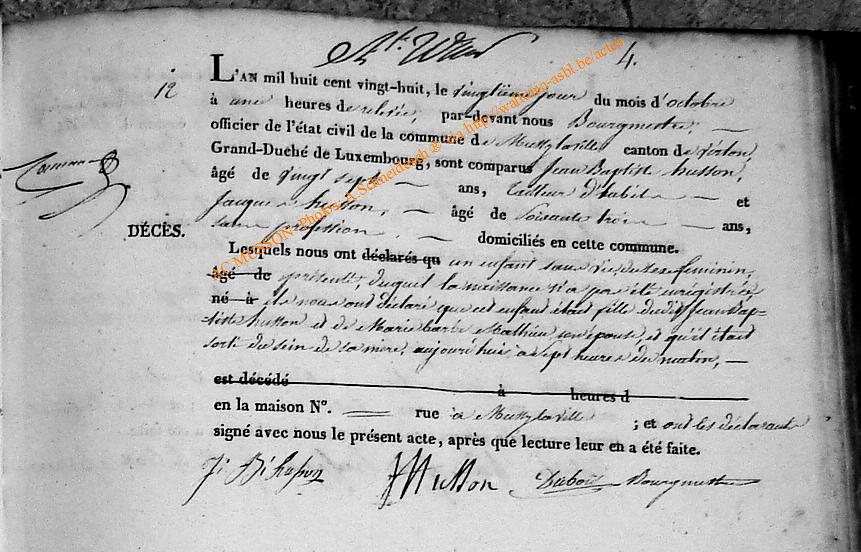 4.
12
L'AN mil huit cent vingt-huit, le vingtième jour du mois d'octobre
à une heures de relevée, par-devant nous Bourgmestre, —
officier de l'état civil de la commune de Mussylaville canton de Virton,
Grand-Duché de Luxembourg, sont comparus Jean Baptiste husson,
âgé de vingt sept — ans, tailleur d'habits — et
Jacques husson, — âgé de soixante trois — ans,
sans profession, — domiciliés en cette commune.
DÉCÈS.
Lesquels nous ont déclarés qu un enfant sans vie, du sexe feminin,
âgé de présenté, duquel la naissance n'a pas été enregistrée,
né à ils nous ont déclaré que cet enfant était fille dudit Jean Bap-
tiste husson et de Marie barbe Mathieu, son épouse, et qu'il était
sorti du sein de sa mère, aujourd'hui à sept heures du matin, —
est décédé à heures d
en la maison N°. — rue à Mussylaville ; et ont les déclarants
signé avec nous le présent acte, après que lecture leur en a été faite.
J. B. husson JHusson Dubois Bourgmestre
AC MUSSON- Photos: A Schneidesch @ via http://wallonia-asbl.be/actes